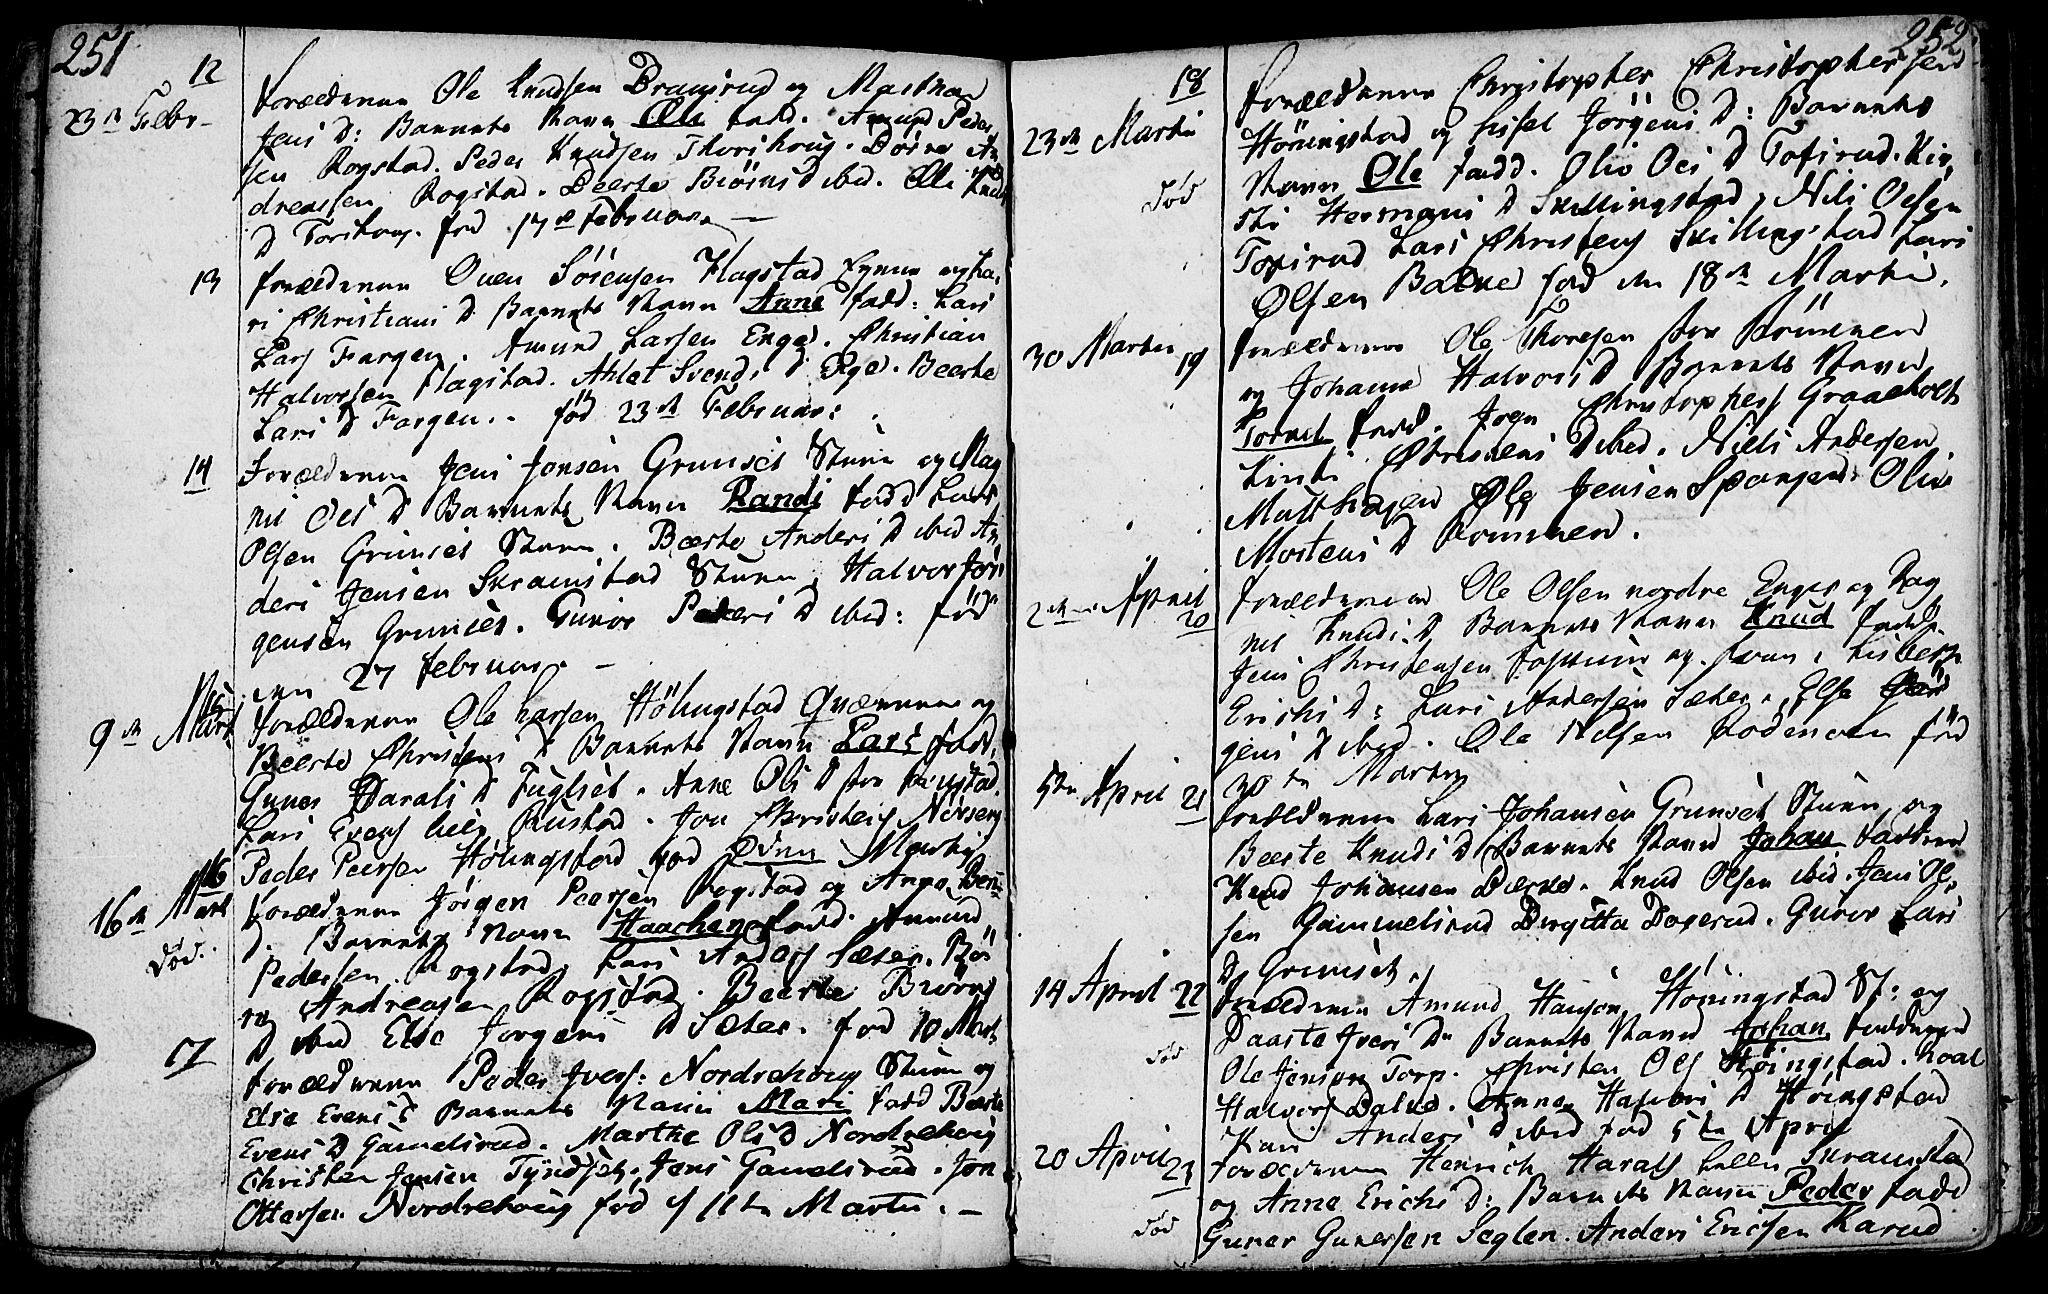 251
12
23 n Febr
Forældrene Ole Knudsen Dragsrud og Marthe
Jens D: Barnets Navn Ole fadd. Amund Peder
sen Rogstad. Peder Knudsen Thorshoug. Børre An
dreassen Rogstad. Beerte Biørns D ibid. Knud
D Torshoug. fød 17de Februar
13
Forældrene Ouen Sørensen Flagstad og Ka,
ri Christians D Barnets Navn Anne fadd: Lars
Lars Fargen. Amund Larsen Enge. Christian
Halvorsen Flagstad. Ahlet Svends D Rye. Beerte
Lars D Fargen. fød 23 Februar:
14
Forældrene Jens Jensen Grunset Stuen og Mag
nil Ols D Barnets Navn Randi fadd Lars
Olsen Grunset Stuen. Beerte Anders D ibid An
ders Jensen Skramstad Stuen, Halvor Jør
gensen Grunset. Gunor Peders D ibid: fød
27 februar.
15
9 n Mart
Forældrene Ole Larsen Hølingstad Qværnen og
Beerte Christens D Barnets Navn Lars fadd.
Guner Harals D Fuglset. Anne Ols D
Lars Evens Rustad. Jon Christens
Peder Peersen Hølingstad fød Martii
16
16 n Mart
død.
Forældrene Jørgen Peersen Rogstad og Anne
D. Barnets Navn Haachen fadd. Amund
Pedersen Rogstad, Lars Anders Sæter. Bør
re Andreasen Rogstad. Beerte Biørns
D ibid Else Jørgens D Sæter. fød 10 Mart
17
Forældrene Peder Ivers: Nordrehoug Stuen og
Else Evens D Barnets Navn Mari fadd Beerte
Evens D Gamelsrud. Marthe Ols D Nordrehoug
Christen Jensen Tyndset, Jens Gamelsrud. Jon
Ottersen Nordrehoug fød 11te Martii.
252
18
23 n Martii
død
Forældrene Christopher Christophersen
Høningstad og Sisel Jørgens D: Barnets
Navn Ole fadd. Oliv Ols D Tofsrud. Kir,
sti Hermans D Skillingstad, Nils Olsen
Tofsrud Lars Christens Skillingstad Lars
Olsen Balke fød den 18 n Martii.
30 Martii 19
Forældrene Ole Thoresen Rømmen
og Johanne Halvors D Barnets Navn
Tornel fadd. Joen Christophers Graaeholt
Kirsti Christens D ibid. Niels Andersen
Ole Jensen Spangen. Oliv
Mortens D Rømmen.
2 April 20
Forældrene Ole Olsen nordre Enger og Rag
nil Knuds D Barnets Navn Knud fadd.
Jens Christensen
Erichs D: Lars Andersen Sæter. Else Jør
gens D ibid. Ole Nilsen fød
30te Martii
5te April 21
Forældrene Lars Johansen Grunset Stuen og
Beerte Knuds D Barnets Navn Johan fadderne
Knud Johansen. Knud Olsen ibid. Jens Ol,
sen Gammelsrud Birgitta Dogerud. Gunor Lars
D Grunset.
14 April 22
død
Forældrene Amund Hansen Høningstad St: og
Ivers D Barnets Navn Johan fadderne
Ole Jensen Torp. Christen Ols Høingstad. Roal
Halvors Balke. Anne Halvors D Høingstad
Kari Anders D ibid fød 5te April
20 April 23
død
Forældrene Henrich Harals Skramstad
og Anne Erichs D: Barnets Navn Peder fadd
Guner Gunersen Seglen. Anders Ericsen Karud